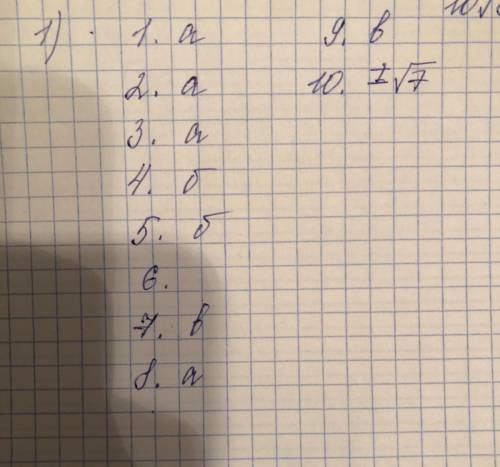 1) 1. а
2. а
3. а
4. б
5. б
6.
7. в
8. а
9. в
10. ±√7